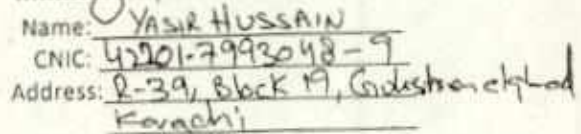 Name: YASIR HUSSAIN
CNIC: 42201-7993048-9
Address: R-39, Block 19,
Karachi